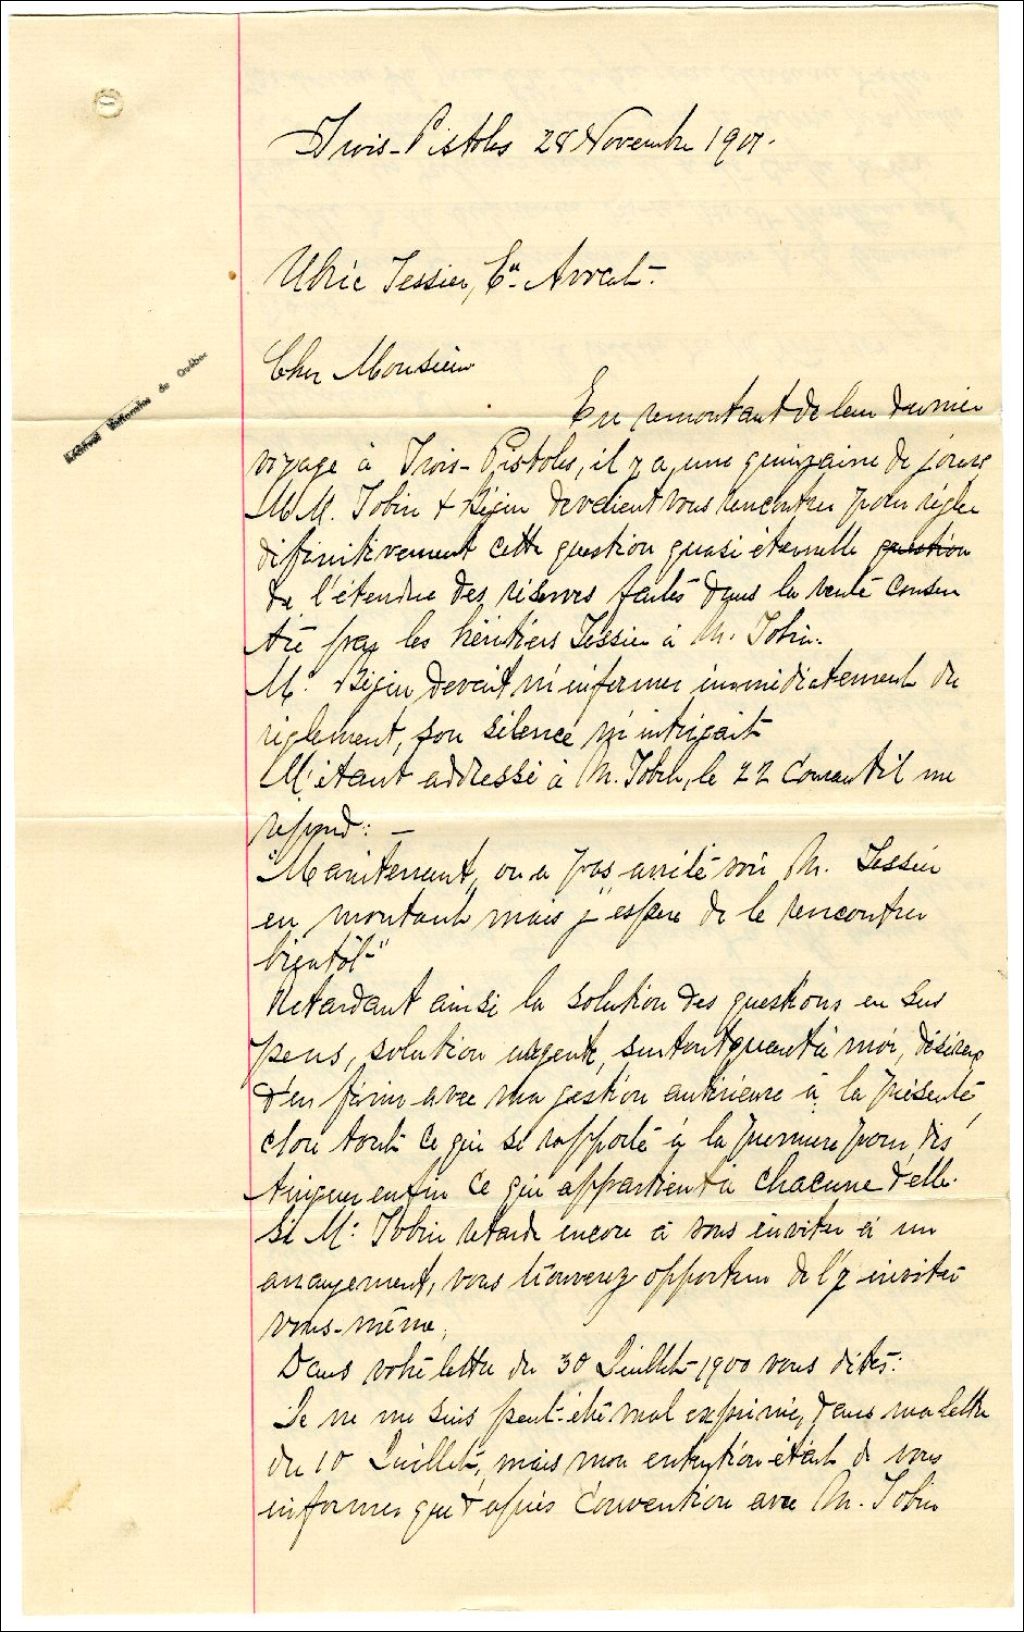 Trois-Pistoles 28 Novembre 1901.
Ulric Tessier, Er. Avocat.
Cher Monsieur
En remontant de leur dernier
voyage à Trois-Pistoles, il y a, une quinzaine de jours
MM. Tobin & Bégin devaient vous rencontrer pour régler
définitivement cette question quasi éternelle question
de l'étendue des réserves faites dans la vente consen
tie par les héritiers Tessier à M. Tobin.
Mr. Bégin devait m'informer immédiatement du
règlement, son silence m'intrigait
M'étant addressé à M. Tobin, le 22 Courant il me
répond: —
"Maintenant, on a pas arrêté voir M. Tessier
en montant mais j'espère de le rencontrer
bientôt"
Retardant ainsi la solution des questions en sus
pens, solution urgente, surtout quant à moi, désireux
d'en finir avec ma gestion antérieure à la présente,
clore tout ce qui se rapporte à la première pour dis
tinguer enfin ce qui appartient à chacune d'elle.
Si Mr. Tobin retarde encore à vous inviter à un
arrangement, vous trouverez opportun de l'y inviter
vous-même,
Dans votre lettre du 30 Juillet 1900 vous dites:
Je ne me suis peut-être mal exprimé, dans ma lettre
du 10 Juillet, mais mon intention était de vous
informer que d'après Convention avec M. Tobin
Archives Nationales du Québec